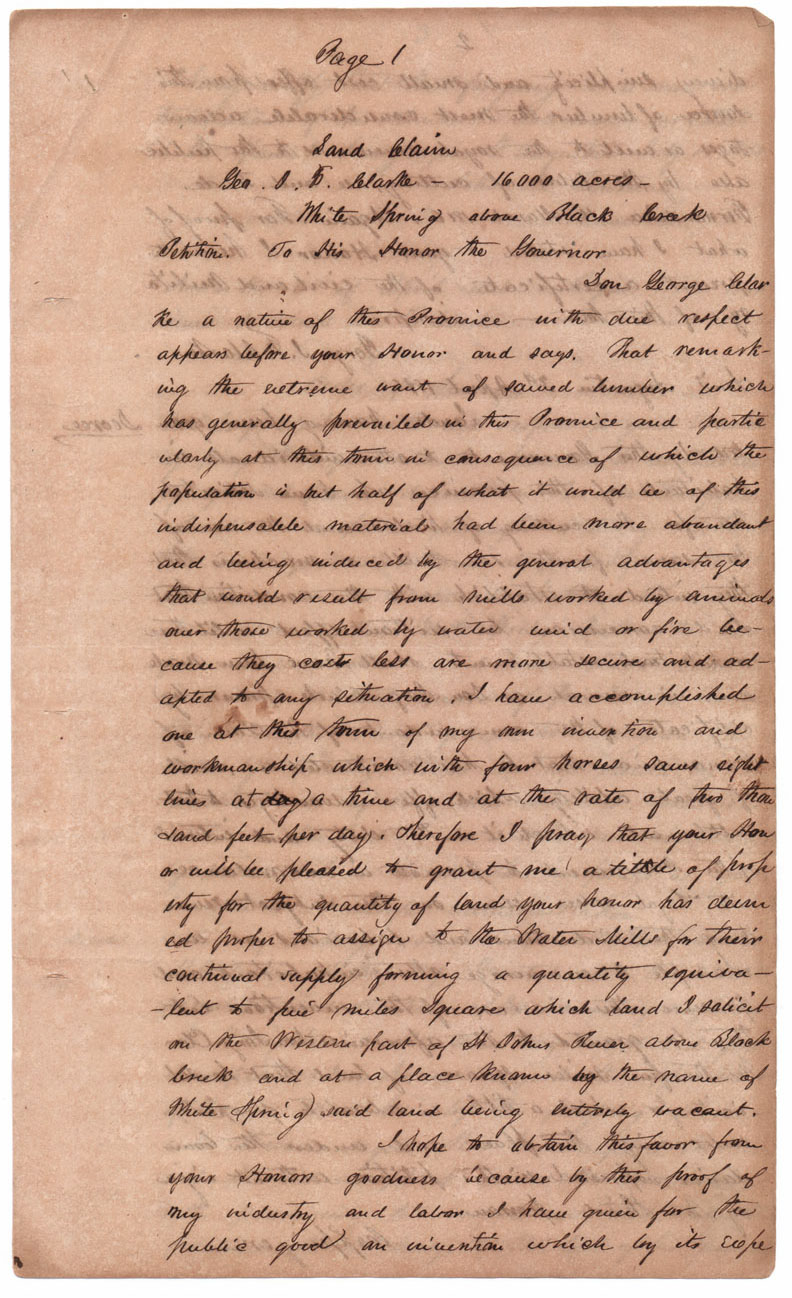 Page 1
Land Claim
Geo. J. F. Clarke – 16000 acres –
White Spring above Black Creek
Petition. To His Honor the Governor
Don George Clar
ke a native of this Province with due respect
appears before your Honor and says. That remark-
ing the extreme want of sawed lumber which
has generally prevailed in this Province and partic
ularly at this town in consequence of which the
population is but half of what it would be if this
indispensable materials had been more abundant
and being induced by the general advantages
that would result from mills worked by animals
over those worked by water wind or fire be-
cause they cost less are more secure and ad-
apted to any situation. I have accomplished
one at this town of my own invention and
workmanship which with four horses saws eight
lines at day a time and at the rate of two thou
sand feet per day. Therefore I pray that your Hon
or will be pleased to grant me a tittle of prop
erty for the quantity of land your honor has deem
ed proper to assign to the Water Mills for their
continual supply forming a quantity equiva-
-lent to five miles square which land I solicit
on the Western part of St Johns River above Black
Creek and at a place known by the name of
White Spring said land being entirely vacant.
I hope to obtain this favor from
your Honors goodness because by this proof of
my industry and labor I have given for the
public good an invention which by its